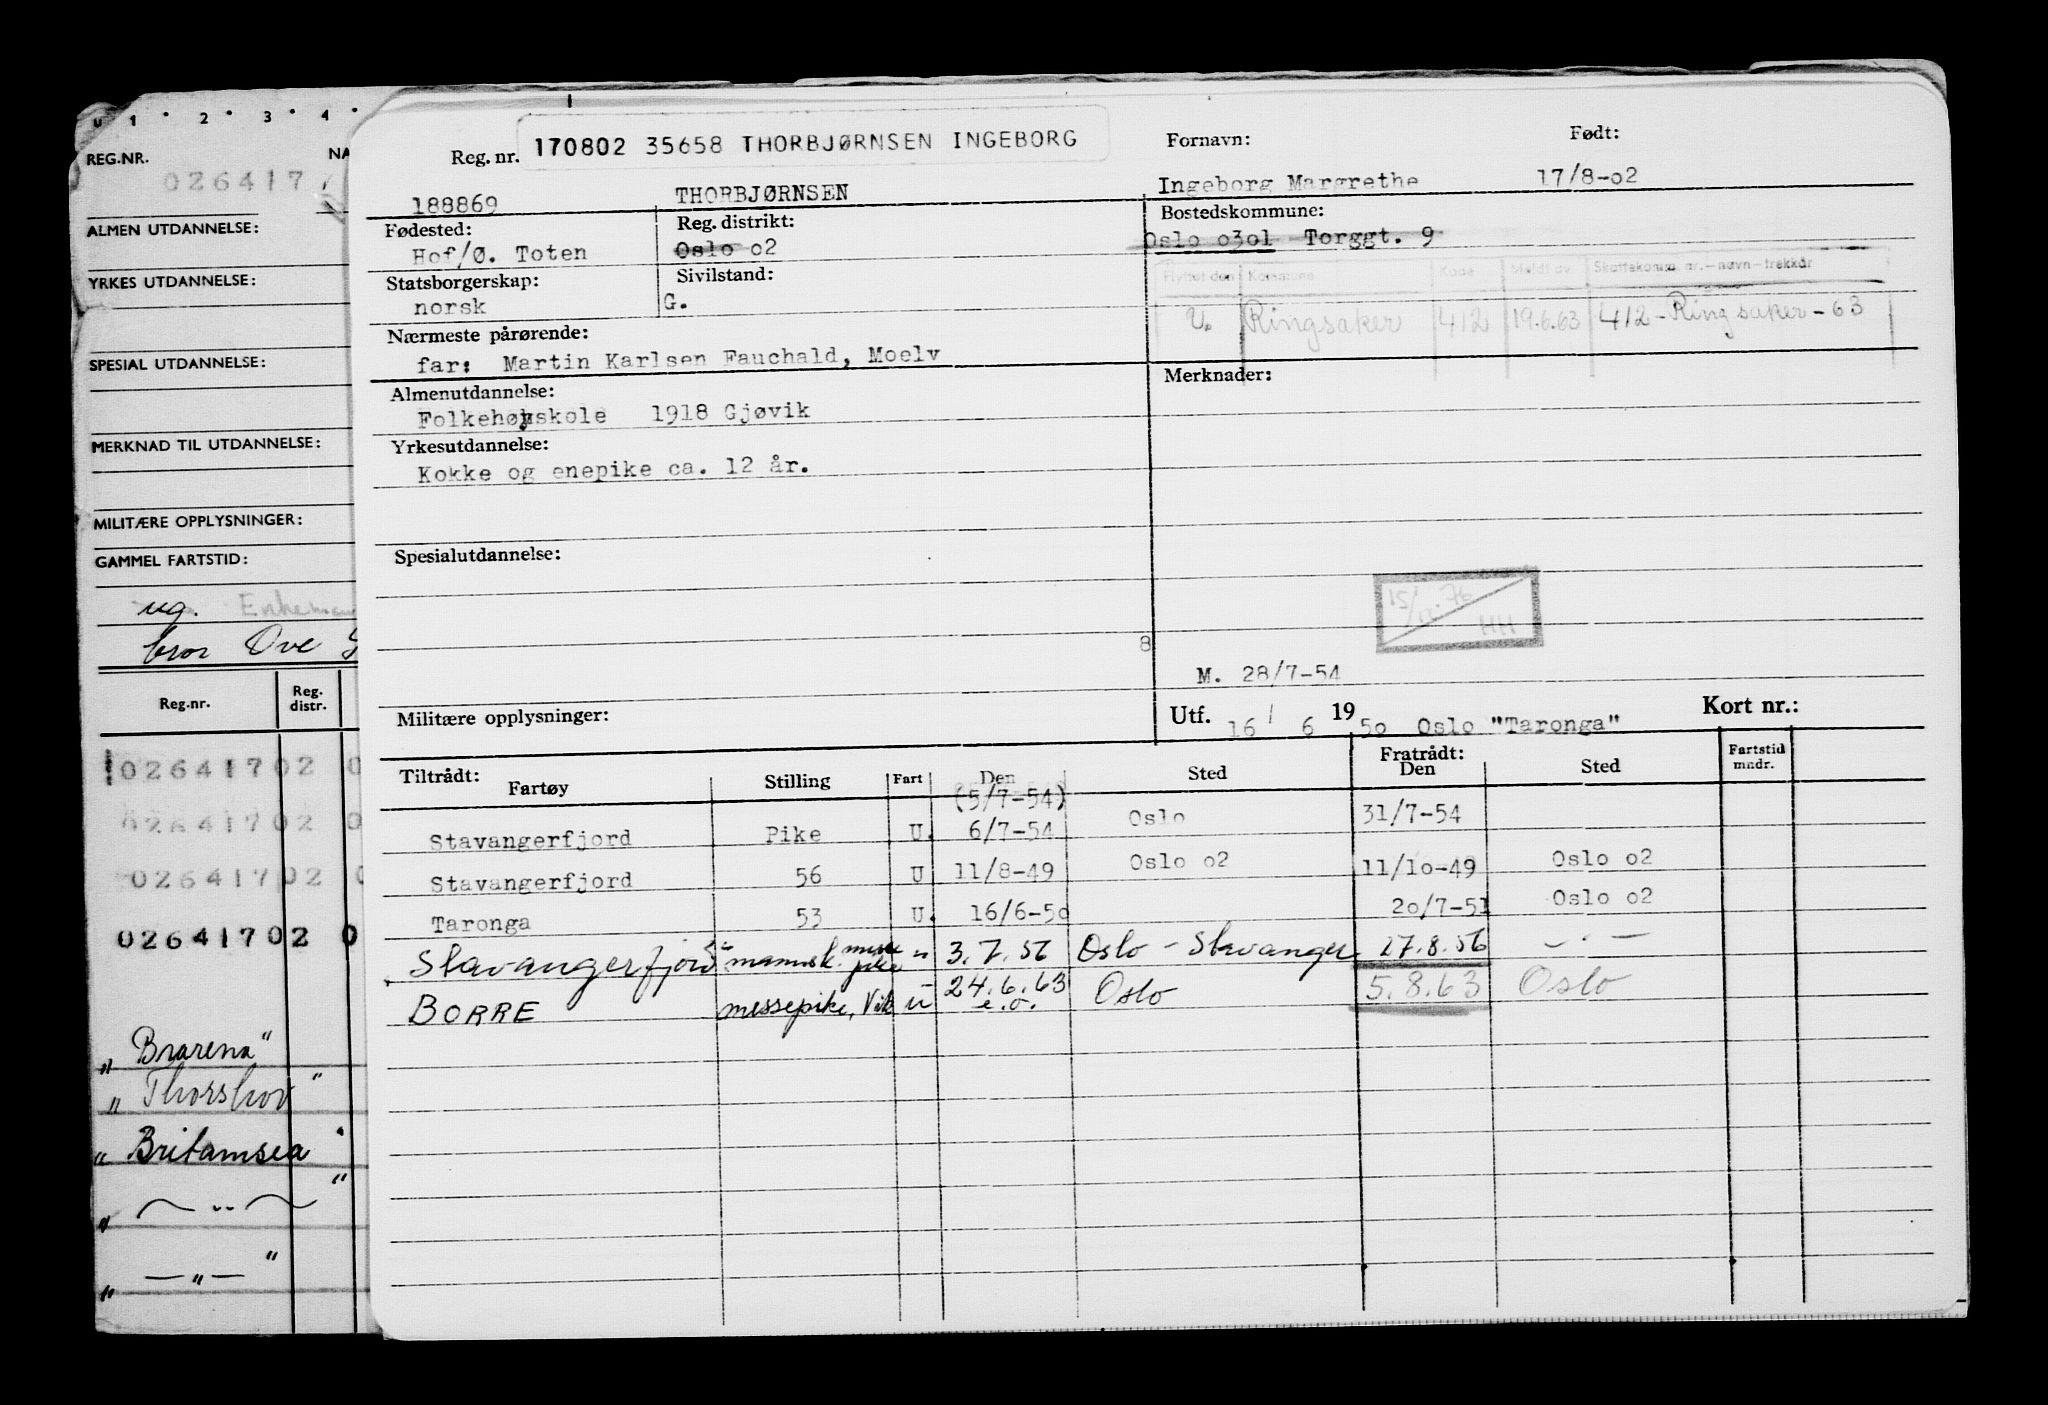 u 1 · 2 · 3 · 4 ·
REG.NR. NA
026417
ALMEN UTDANNELSE:
YRKES UTDANNELSE:
SPESIAL UTDANNELSE:
MERKNAD TIL UTDANNELSE:
MILITÆRE OPPLYSNINGER:
GAMMEL FARTSTID:
ug.
bror Ove
Reg.nr. Reg. distr.
02641702 0
02641702 0
02641702 0
02641702 0
„ Brarena"
„ Thorshov"
„ Britamsea"
„ — " — "
„ — " — "
Reg. nr. 170802 35658 THORBJØRNSEN INGEBORG Fornavn: Født:
188869 THORBJØRNSEN Ingeborg Margrethe 17/8-02
Fødested: Reg. distrikt: Bostedskommune:
Hof/Ø. Toten Oslo o2 Oslo o3ol Torggt. 9
Statsborgerskap: Sivilstand: Flyttet den Kommune Kode Meldt av Skattekomm. nr.—navn—trekkår
norsk G. U. Ringsaker 412 19.6.63 412-Ringsaker-63
Nærmeste pårørende:
far: Martin Karlsen Fauchald, Moelv
Almenutdannelse: Merknader:
Folkehøyskole 1918 Gjøvik
Yrkesutdannelse:
Kokke og enepike ca. 12 år.
Spesialutdannelse:
15/12.76 HH
8
M. 28/7-54
Militære opplysninger: Utf. 16/ 6 19 50 Oslo "Taronga" Kort nr.:
Tiltrådt: Fartøy Stilling Fart Den Sted Fratrådt: Den Sted Fartstid mndr.
(5/7-54)
Stavangerfjord Pike U. 6/7-54 Oslo 31/7-54
Stavangerfjord 56 U 11/8-49 Oslo o2 11/10-49 Oslo o2
Taronga 53 U. 16/6-50 20/7-51 Oslo o2
Stavangerfjord mannsk. messepike u 3.7.56 Oslo - Stavanger 17.8.56 — · —
BORRE messepike, Vik u 24.6.63 e.o. Oslo 5.8.63 Oslo